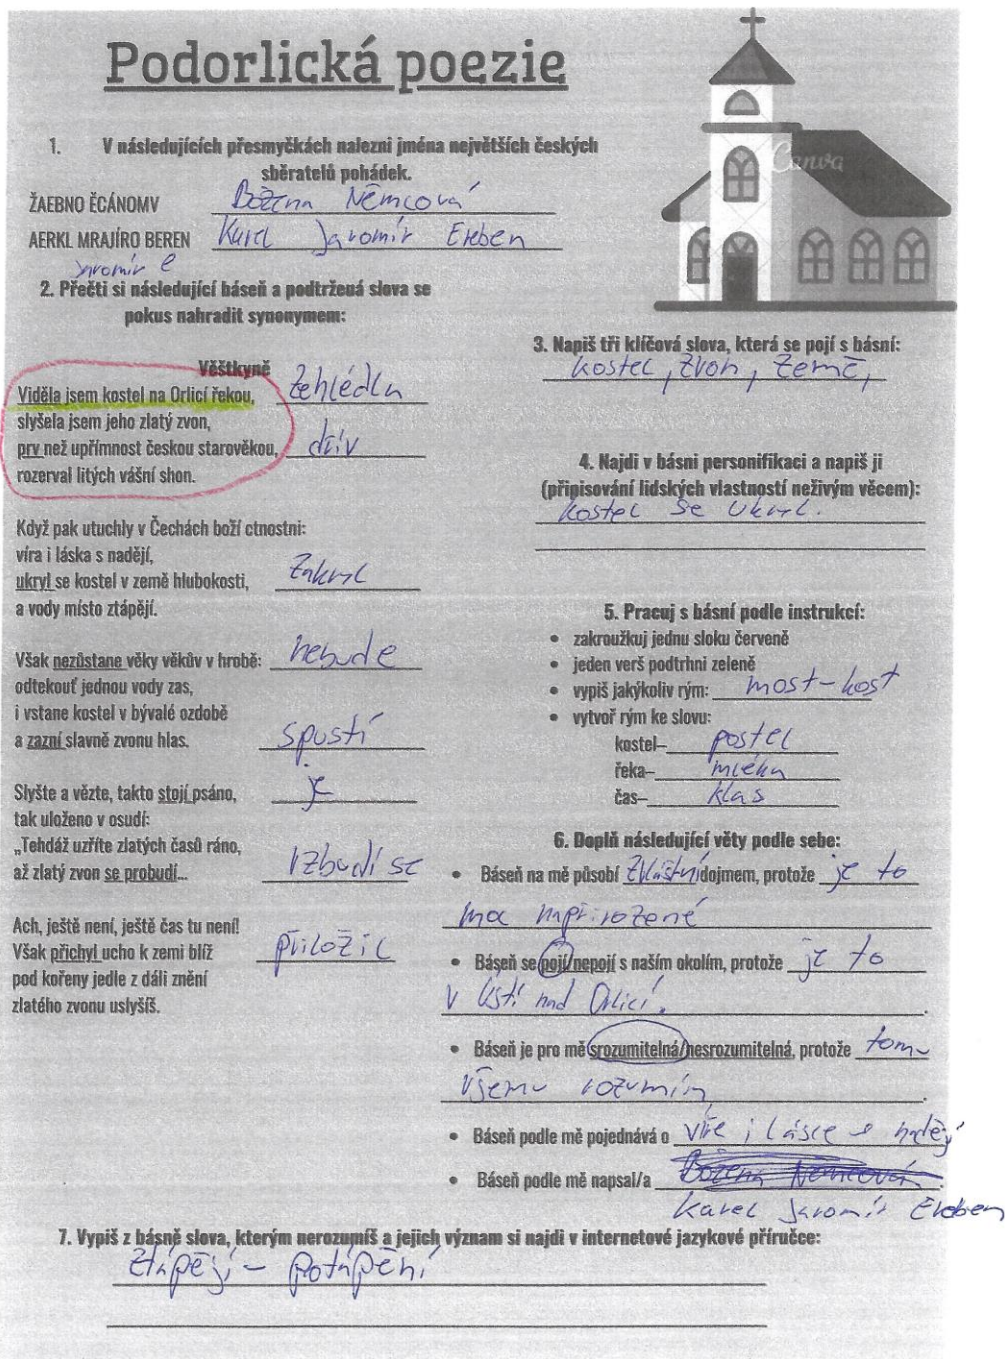 Podorlická poezie
Canva
1. V následujících přesmyčkách nalezni jména největších českých
sběratelů pohádek.
ŽAEBNO ĚCÁNOMV Božena Němcová
AERKL MRAJÍRO BEREN Karel Jaromír Ereben
Jaromír e
2. Přečti si následující báseň a podtržená slova se
pokus nahradit synonymem:
Věštkyně
Viděla jsem kostel na Orlicí řekou, zehlédla
slyšela jsem jeho zlatý zvon,
prv než upřímnost českou starověkou, dřív
rozerval litých vášní shon.
Když pak utuchly v Čechách boží ctnostni:
víra i láska s nadějí,
ukryl se kostel v země hlubokosti, zakryl
a vody místo ztápějí.
Však nezůstane věky věkův v hrobě: nebude
odtekouť jednou vody zas,
i vstane kostel v bývalé ozdobě
a zazní slavně zvonu hlas. spustí
Slyšte a vězte, takto stojí psáno, je
tak uloženo v osudí:
„Tehdáž uzříte zlatých časů ráno,
až zlatý zvon se probudí... vzbudí se
Ach, ještě není, ještě čas tu není!
Však přichyl ucho k zemi blíž přiložil
pod kořeny jedle z dáli znění
zlatého zvonu uslyšíš.
3. Napiš tři klíčová slova, která se pojí s básní:
kostel, zvon, země,
4. Najdi v básni personifikaci a napiš ji
(připisování lidských vlastností neživým věcem):
kostel se ukryl.
5. Pracuj s básní podle instrukcí:
• zakroužkuj jednu sloku červeně
• jeden verš podtrhni zeleně
• vypiš jakýkoliv rým: most-kost
• vytvoř rým ke slovu:
kostel– postel
řeka– mléka
čas– klas
6. Doplň následující věty podle sebe:
• Báseň na mě působí zvláštní dojmem, protože je to
moc napřirozené
• Báseň se pojí/nepojí s naším okolím, protože je to
v Ústí nad Orlicí.
• Báseň je pro mě srozumitelná/nesrozumitelná, protože tomu
všemu rozumím.
• Báseň podle mě pojednává o víře i lásce s naději
• Báseň podle mě napsal/a Božena Němcová.
Karel Jaromír Ereben
7. Vypiš z básně slova, kterým nerozumíš a jejich význam si najdi v internetové jazykové příručce:
ztápějí - potápění